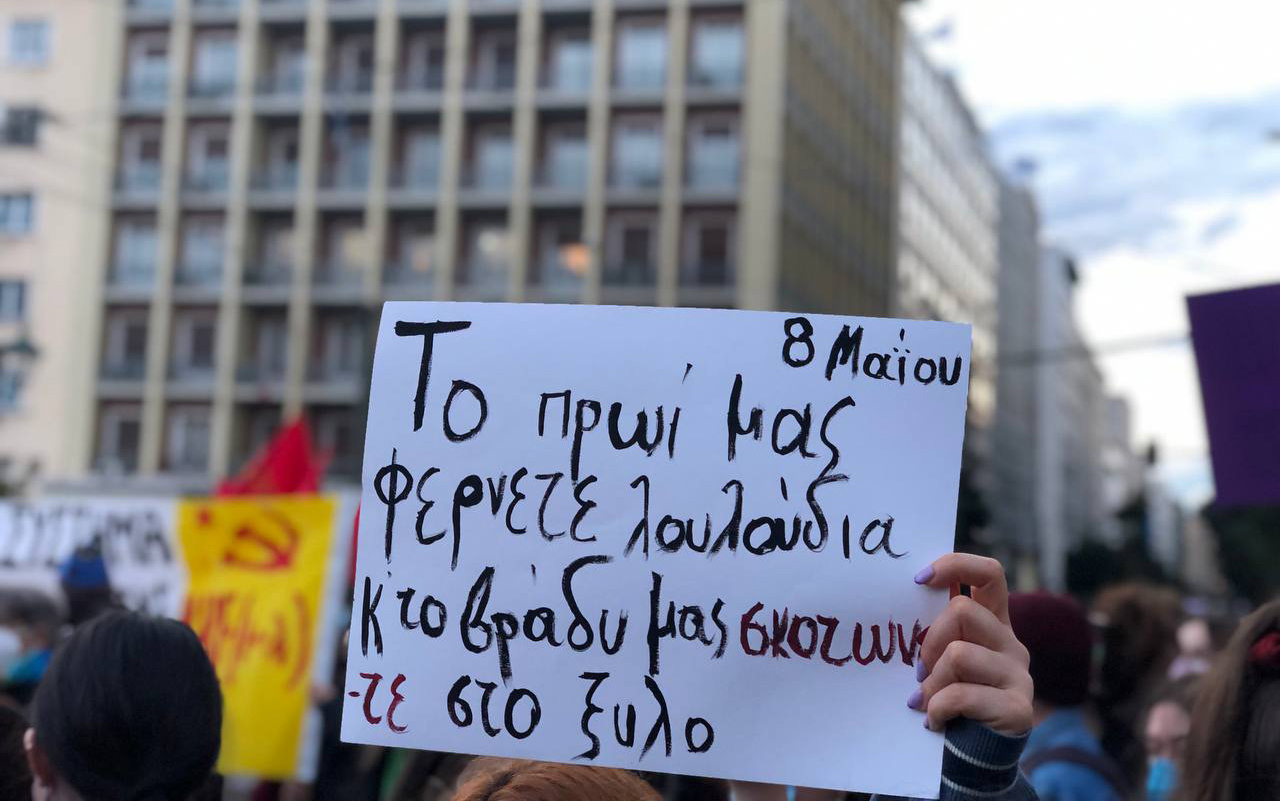 8 Μαΐου
Το πρωί μας
φερνετε λουλούδια
κ το βράδυ μας σκοτωνε
-τε στο ξυλο